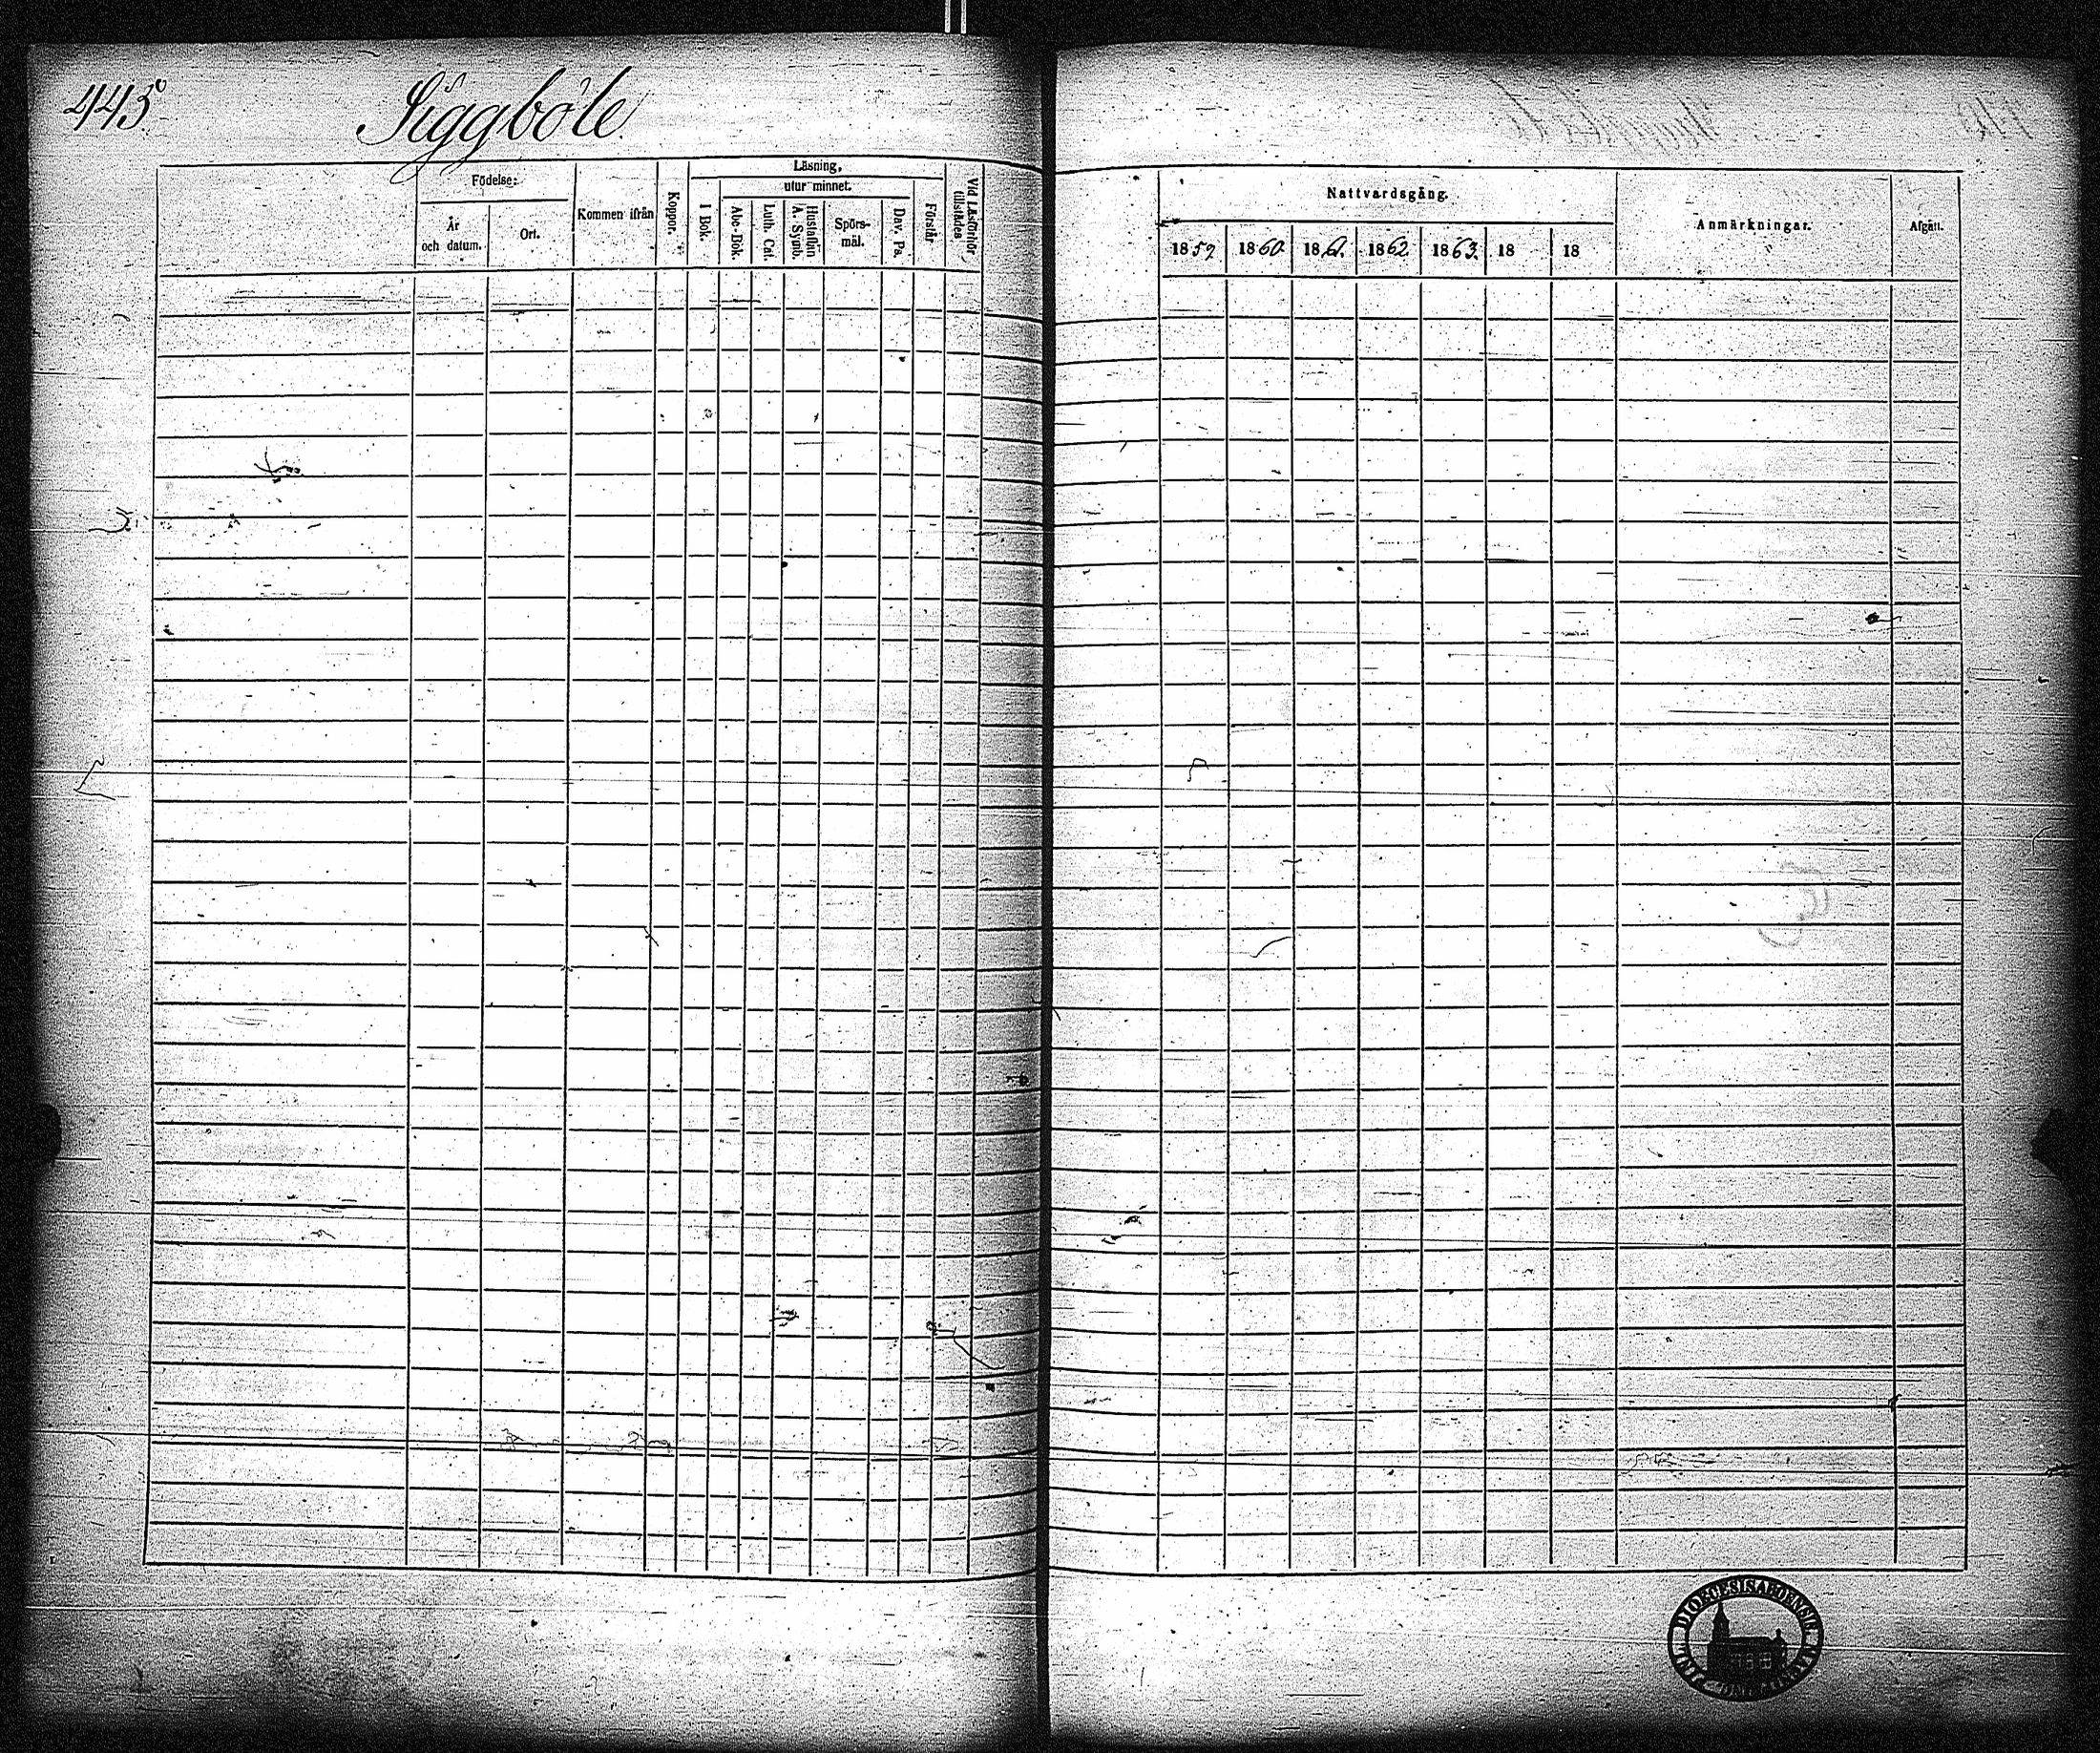 443
Siggböle
Födelse:
År
och datum.
Ort.
Kommen ifrån
Koppor.
Läsning,
utur minnet.
I Bok.
Abc-Bok.
Luth. Cat.
Hustaflan
A. Symb.
Spörs-
mål.
Dav. Ps.
Förstår
Vid Läsförhör
tillstädes
Nattvardsgång.
1859.
1860.
1861.
1862.
1863.
18
18
Anmärkningar.
Afgått.